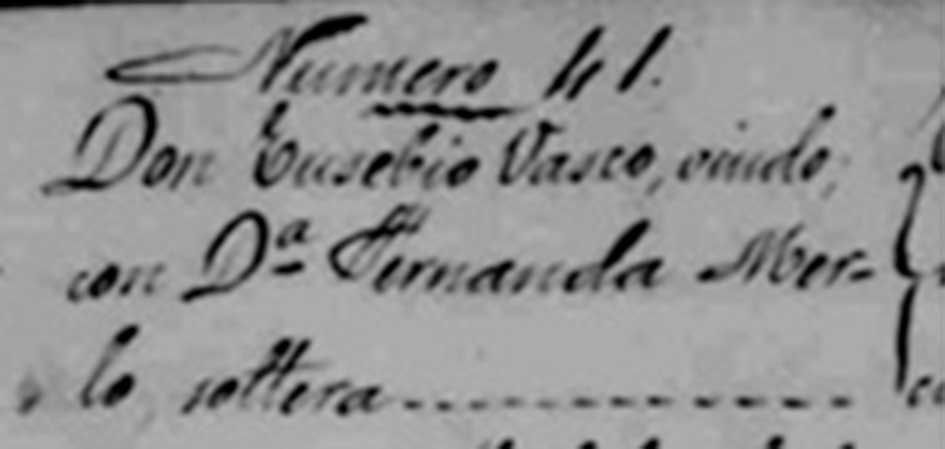 Numero 41.
Don Eusebio Vasco, viudo,
con D.ª Fernanda Mer-
lo, soltera